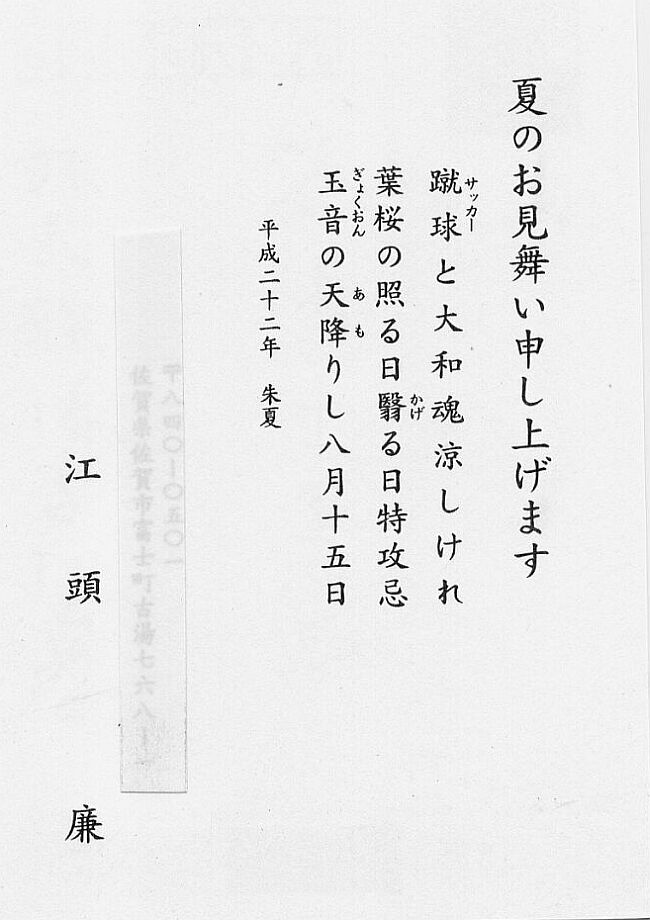 夏のお見舞い申し上げます
蹴球と大和魂涼しけれ
サッカー
葉桜の照る日翳る日特攻忌
かげ
玉音の天降りし八月十五日
ぎょくおん
あも
平成二十二年 朱夏
佐賀県佐賀市富士町古湯七六八
江頭廉